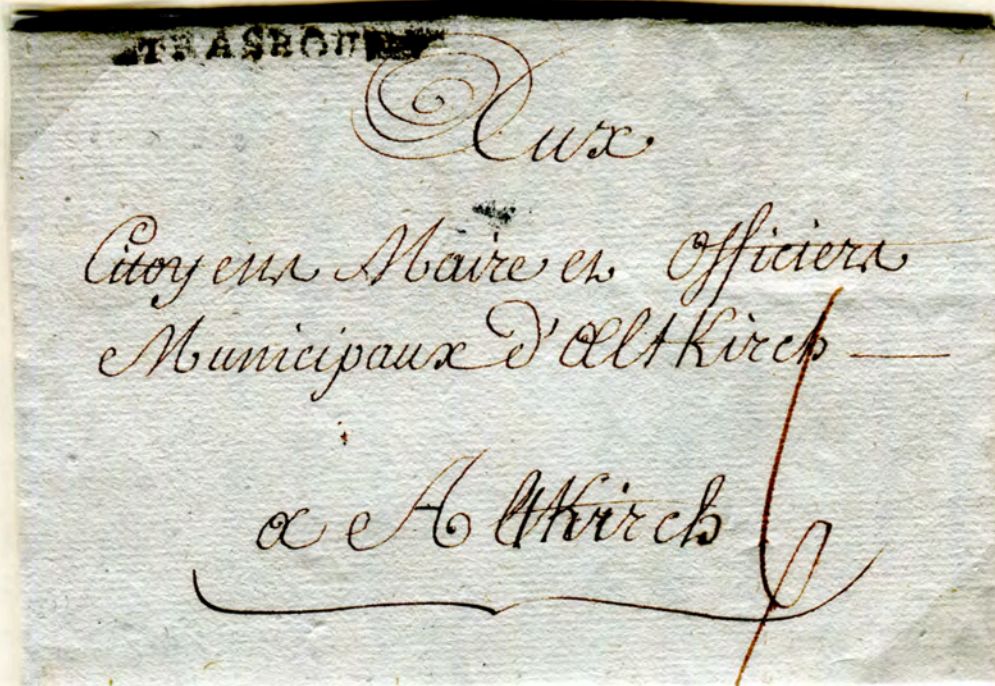 TRASBOU
Aux
Citoyens Maire et Officiers
Municipaux d'Altkirch
a Altkirch